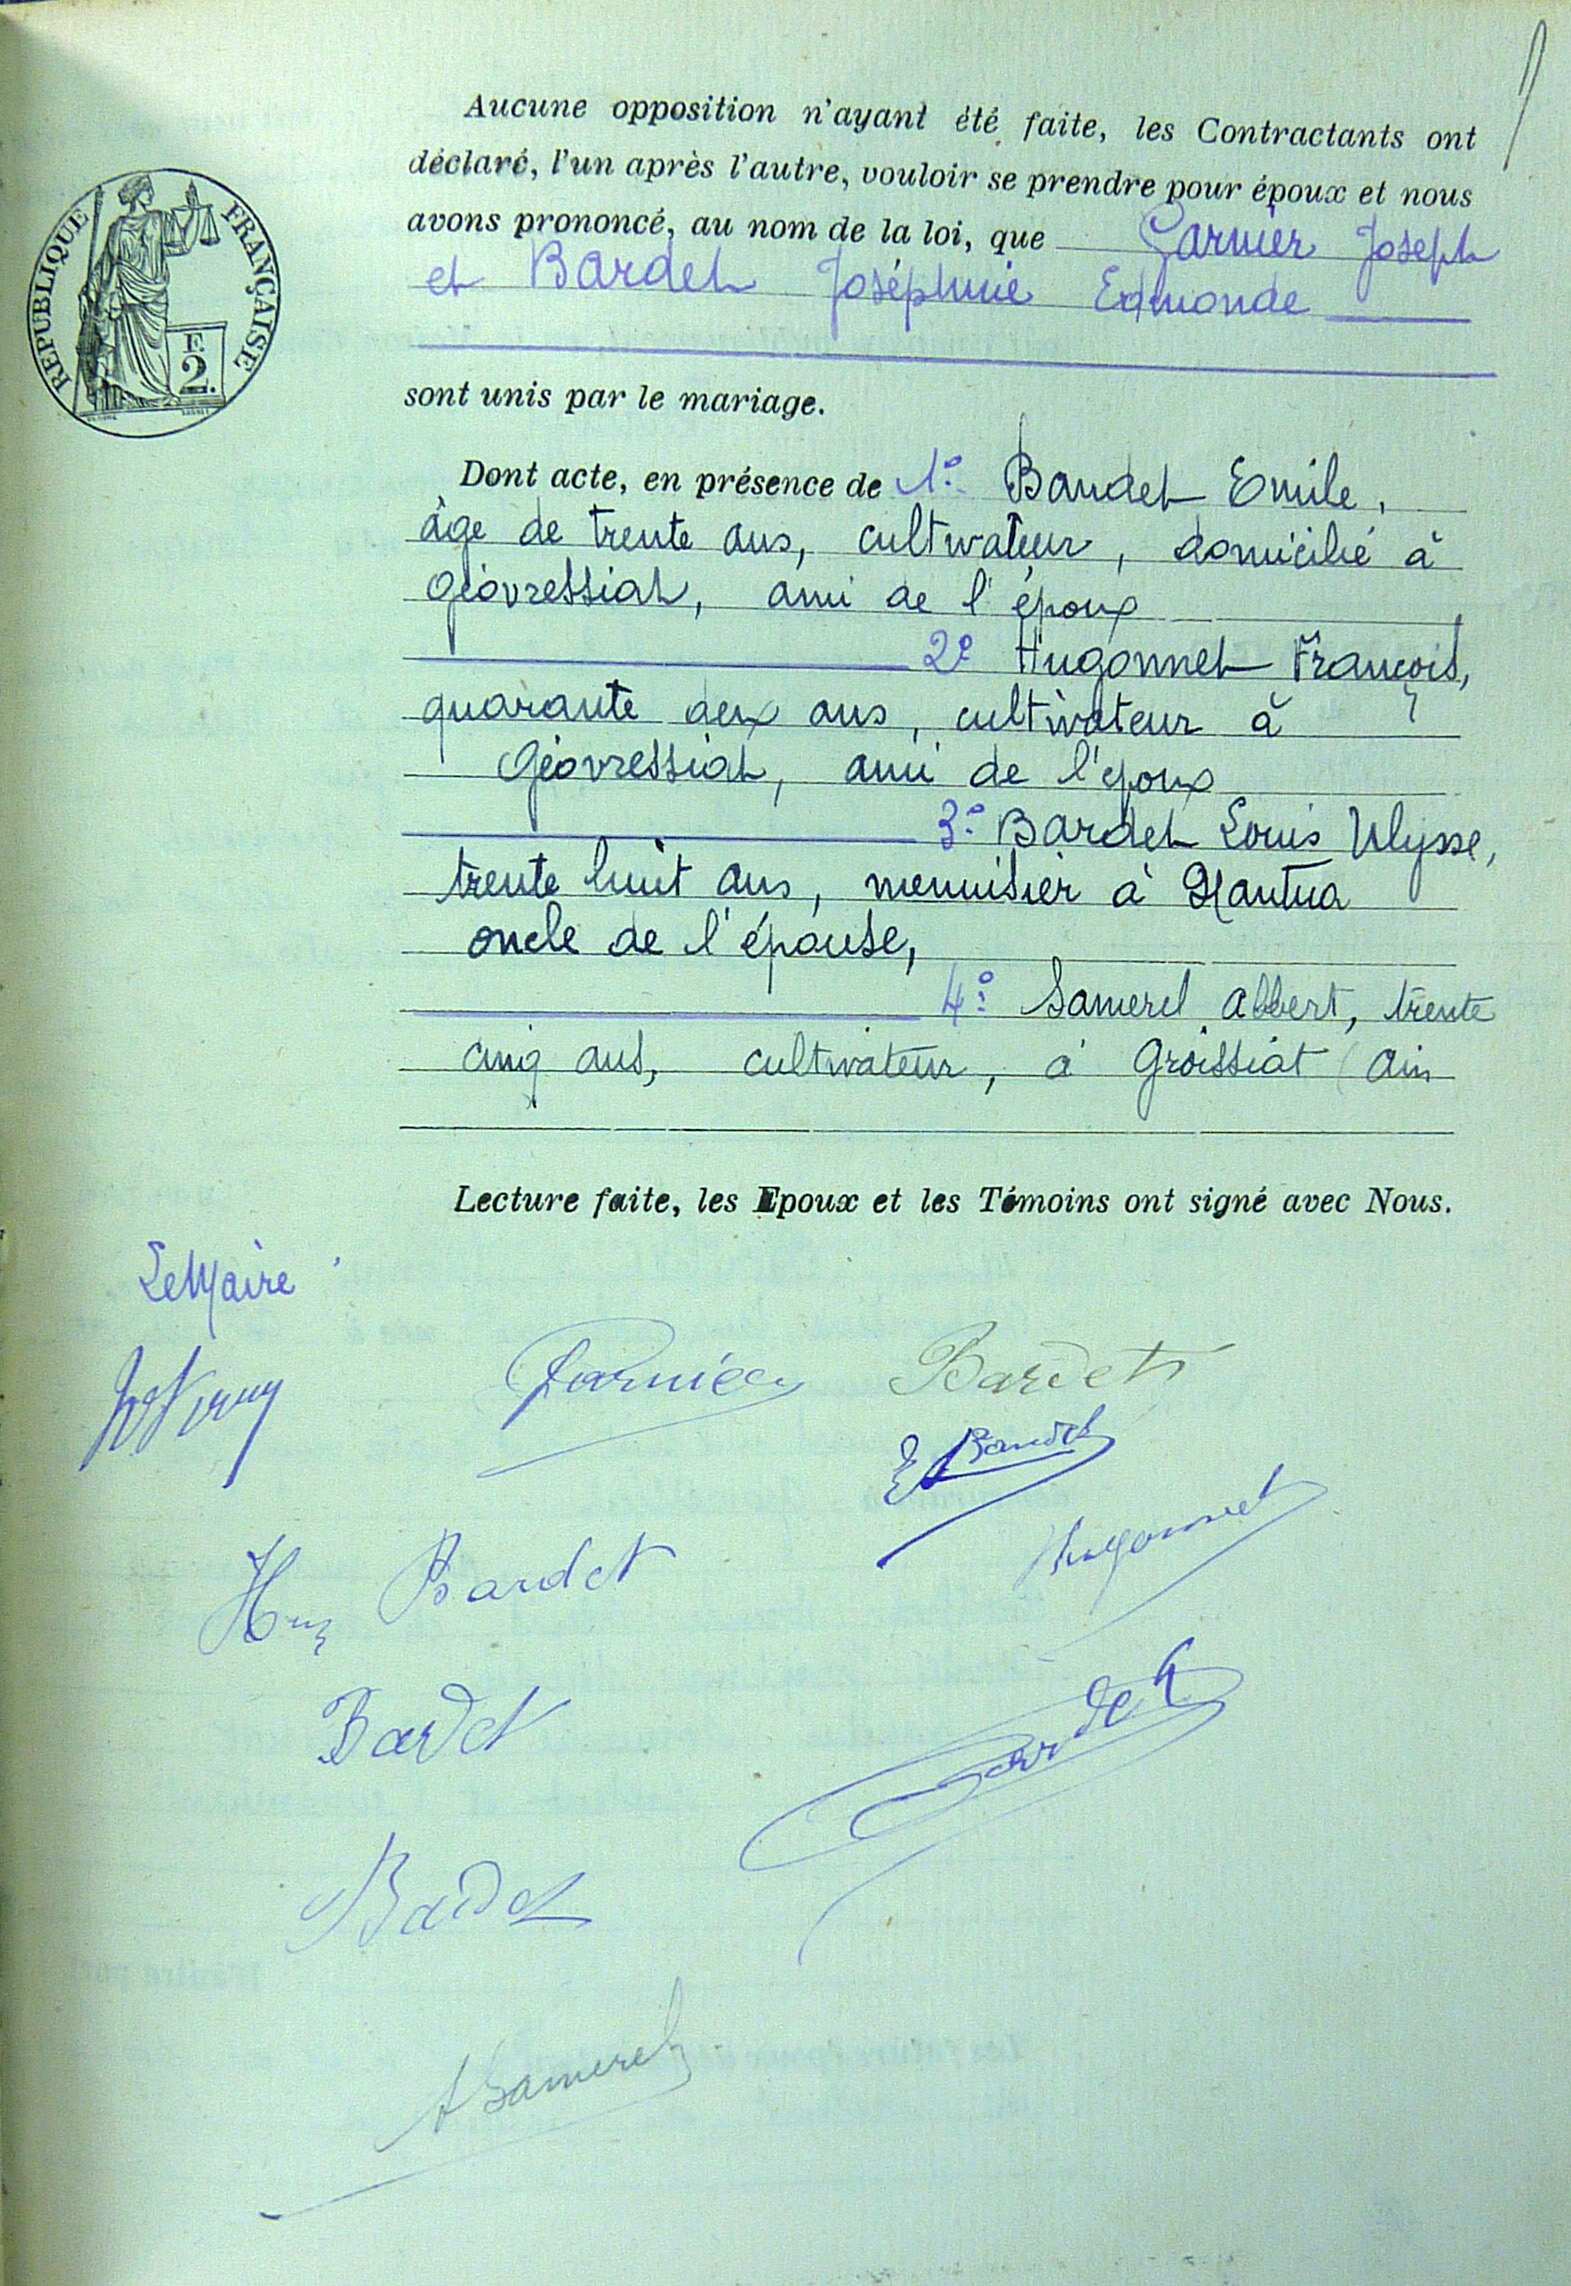 Aucune opposition n'ayant été faite, les Contractants ont
déclaré, l'un après l'autre, vouloir se prendre pour époux et nous
avons prononcé, au nom de la loi, que Garnier Joseph
et Bardet Joséphine Edmonde
RÉPUBLIQUE FRANÇAISE
F.
2.
sont unis par le mariage.
Dont acte, en présence de 1° Baudet Emile,
âge de trente ans, cultivateur, domicilié à
Géovressiat, ami de l'époux
2° Hugonnet François,
quarante deux ans, cultivateur à
Géovressiat, ami de l'époux
3° Bardet Louis Ulysse,
trente huit ans, menuisier à Nantua
oncle de l'épouse,
4° Samerel Albert, trente
cinq ans, cultivateur, à Groissiat (Ain
Lecture faite, les Epoux et les Témoins ont signé avec Nous.
Le Maire
Garnier Bardet
E Baudet
Hugonnet
Bardet
Bardet
Bardet
Bardet
A Samerel